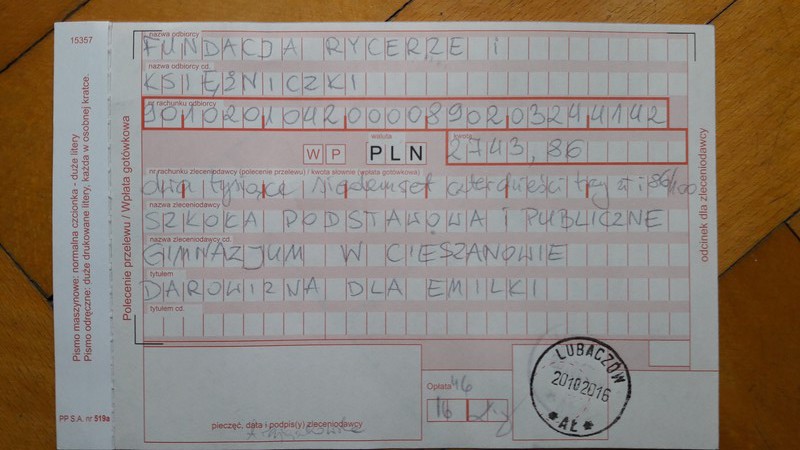 15357
Pismo maszynowe: normalna czcionka - duże litery
Pismo odręczne: duże drukowane litery, każda w osobnej kratce.
PP S.A. nr 519a
Polecenie przelewu / Wpłata gotówkowa
nazwa odbiorcy
FUNDACJA RYCERZE I
nazwa odbiorcy cd.
KSIĘŻNICZKI
nr rachunku odbiorcy
90102010420000890203244142
W P
waluta
PLN
kwota
2743,86
nr rachunku zleceniodawcy (polecenie przelewu) / kwota słownie (wpłata gotówkowa)
dwa tysiące siedemset czterdzieści trzy zł i 86/100
nazwa zleceniodawcy
SZKOŁA PODSTAWOWA I PUBLICZNE
nazwa zleceniodawcy cd.
GIMNAZJUM W CIESZANOWIE
tytułem
DAROWIZNA DLA EMILKI
tytułem cd.
odcinek dla zleceniodawcy
Opłata
pieczęć, data i podpis(y) zleceniodawcy
LUBACZÓW
20102016
AŁ